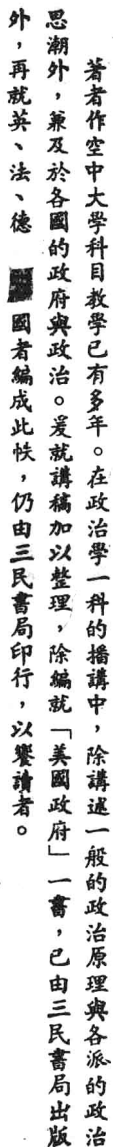 著者作空中大學科目教學已有多年。在政治學一科的播講中，除講述一般的政治原理與各派的政治
思潮外，兼及於各國的政府與政治。爰就講稿加以整理，除編就「美國政府」一書，已由三民書局出版
外，再就英、法、德國者編成此帙，仍由三民書局印行，以饗讀者。